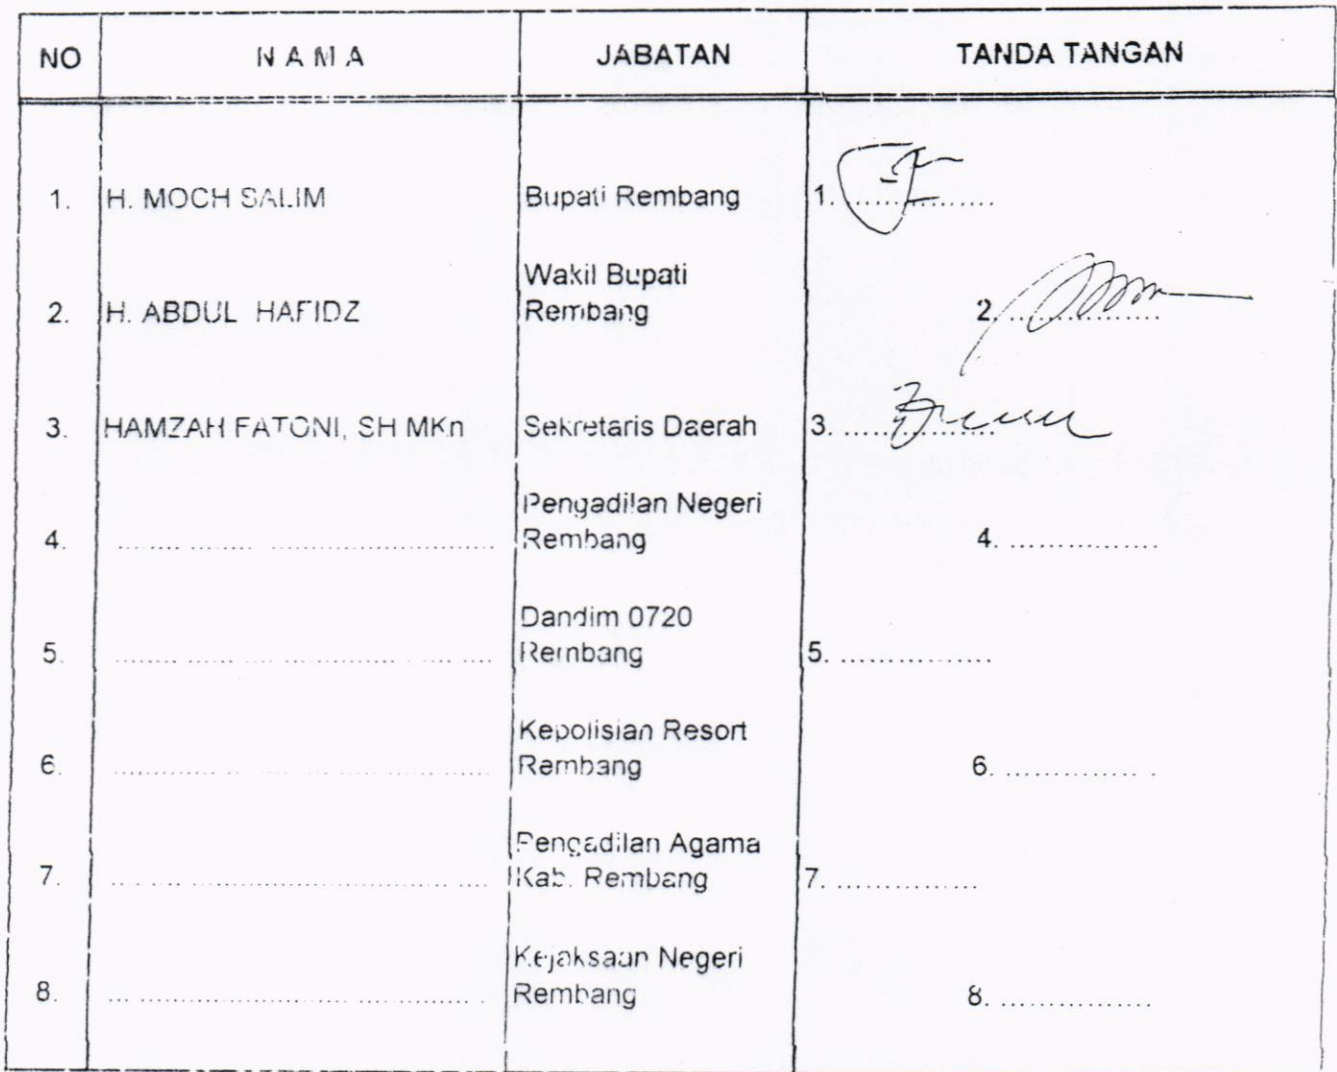 NO N A M A JABATAN TANDA TANGAN
1. H. MOCH SALIM Bupati Rembang 1. ...............
Wakil Bupati
2. H. ABDUL HAFIDZ Rembang 2. ...............
3. HAMZAH FATONI, SH MKn Sekretaris Daerah 3. ...............
Pengadilan Negeri
4. ............................... Rembang 4. ...............
Dandim 0720
5. ............................... Rembang 5. ...............
Kepolisian Resort
6. ............................... Rembang 6. ...............
Pengadilan Agama
7. ............................... Kab. Rembang 7. ...............
Kejaksaan Negeri
8. ............................... Rembang 8. ...............